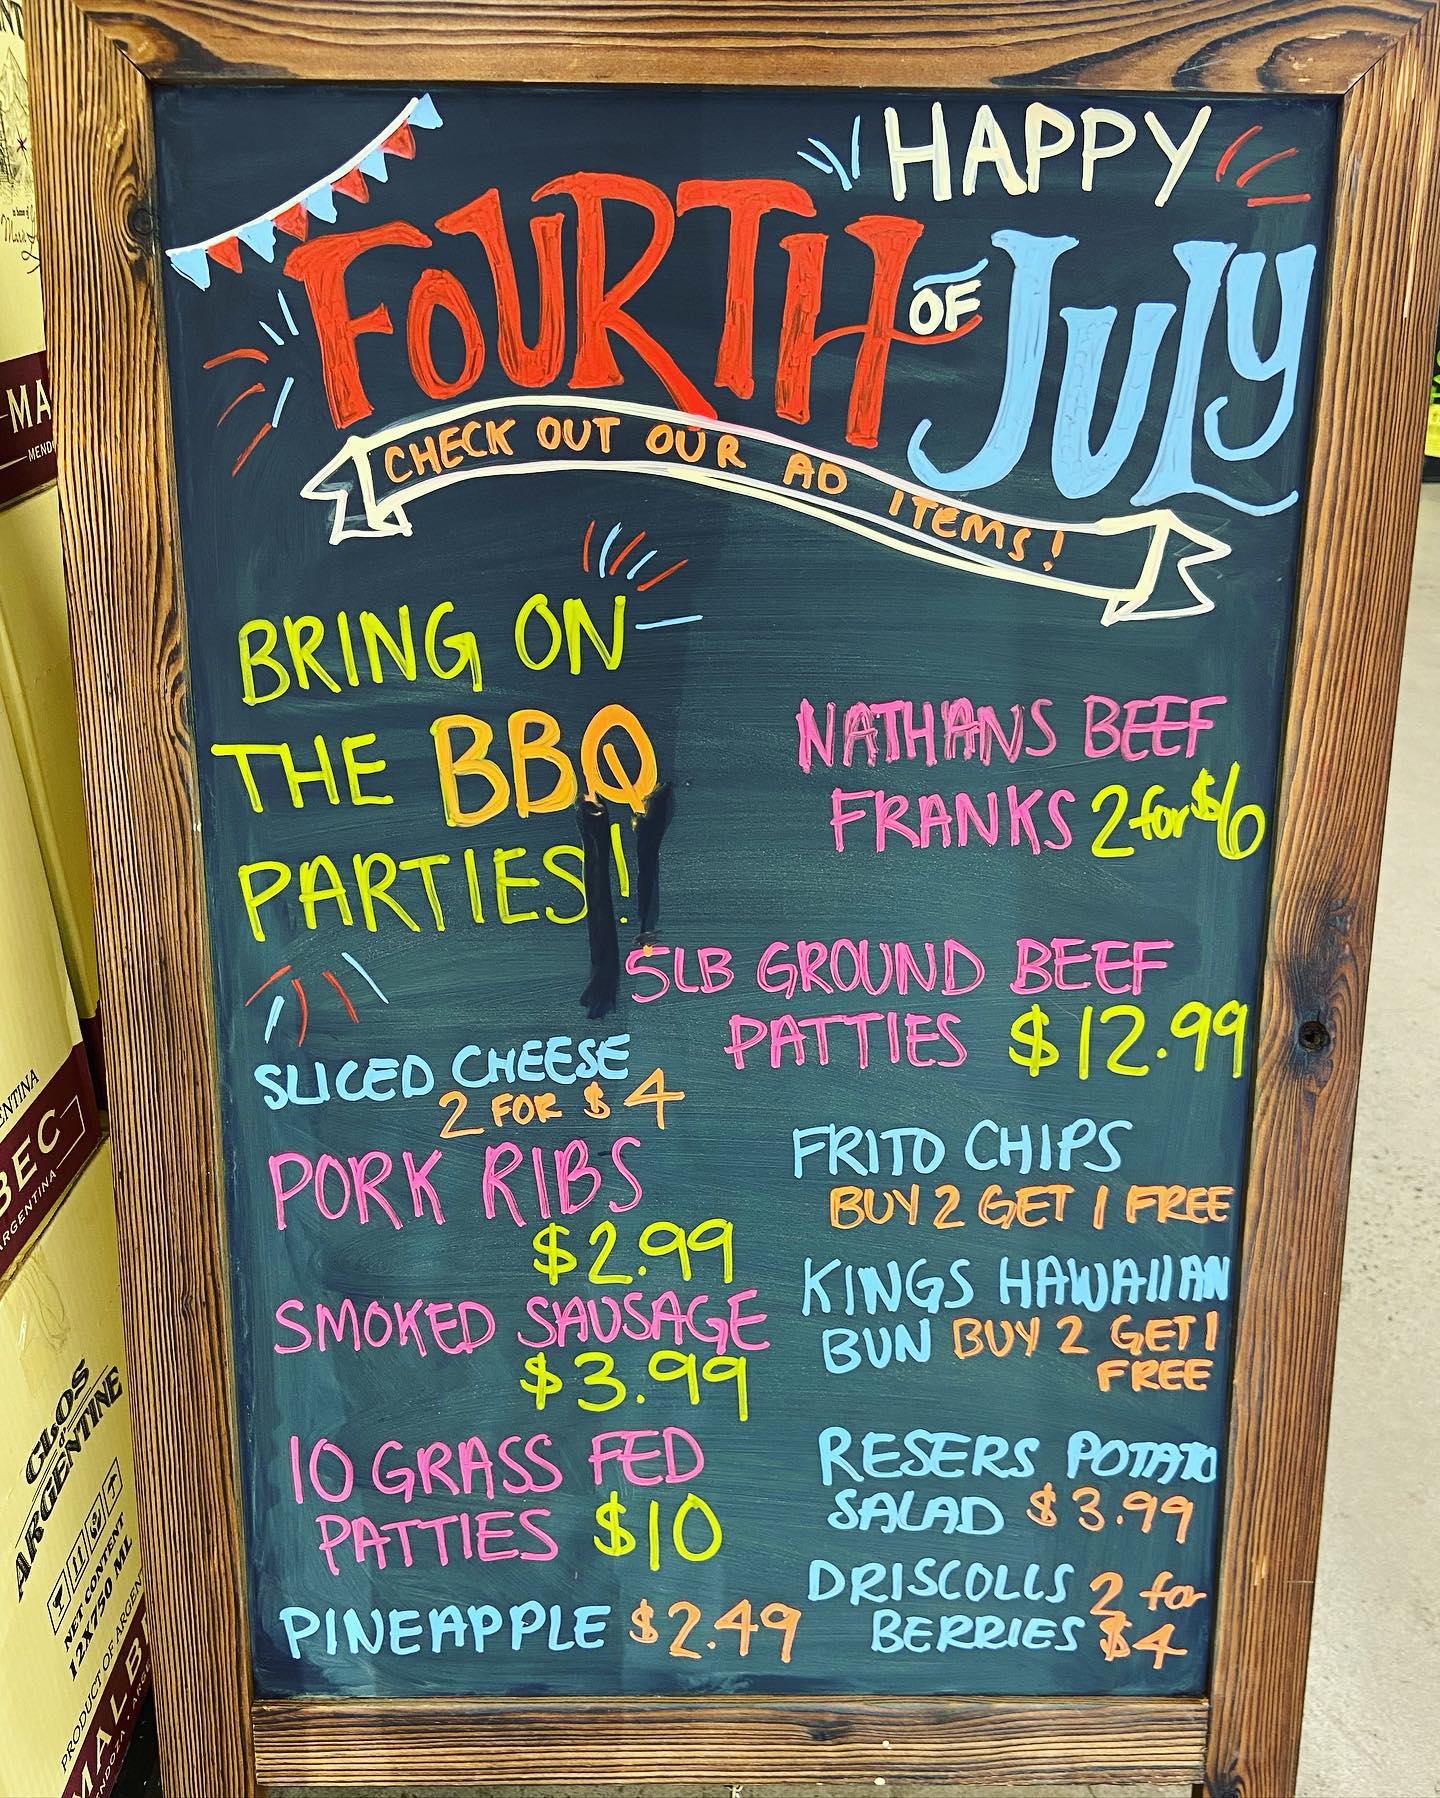 HAPPY
FOURTH OF JULY
CHECK OUT OUR AD ITEMS!
BRING ON
THE BBQ
PARTIES!
NATHANS BEEF
FRANKS 2 for $6
5LB GROUND BEEF
PATTIES $12.99
SLICED CHEESE
2 FOR $4
PORK RIBS
$2.99
SMOKED SAUSAGE
$3.99
10 GRASS FED
PATTIES $10
PINEAPPLE $2.49
FRITO CHIPS
BUY 2 GET 1 FREE
KINGS HAWAIIAN
BUN BUY 2 GET 1
FREE
RESERS POTATO
SALAD $3.99
DRISCOLLS 2 for
BERRIES $4
MA
MEND
ENTINA
BEC
ARGENTINA
CLOS
d'
ARGENTINE
NET CONTENT
12X750 ML
PRODUCT OF ARGEN
MALB